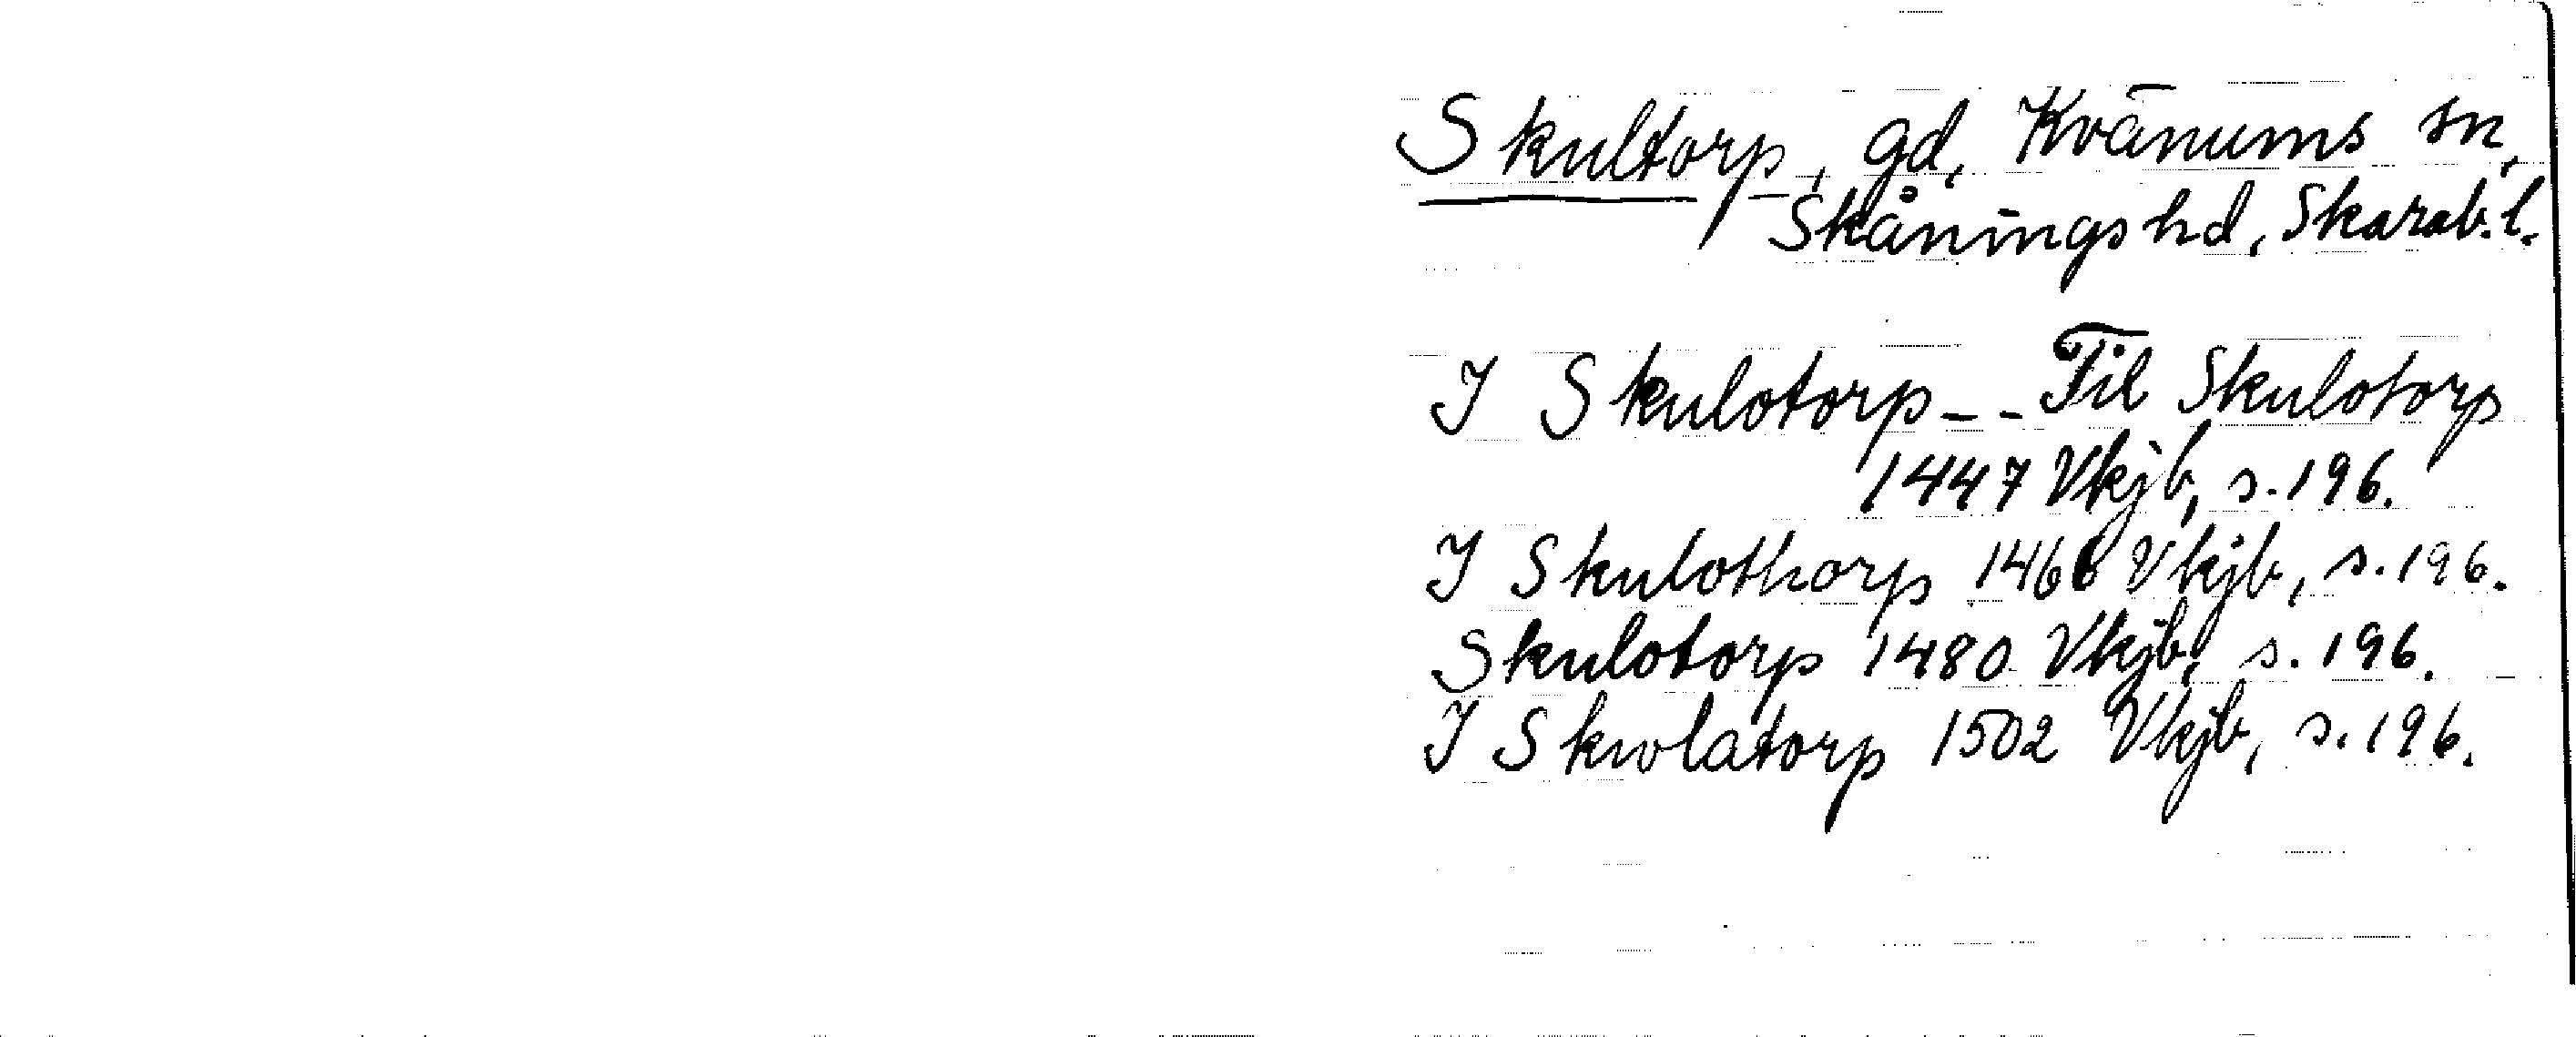 Skultorp, gd, Kvänums sn,
Skånings hd, Skarab. l.
I Skulotorp -- Til Skulotorp
1447 Vkjb, s. 196.
I Skulothorp 1466 Vkjb, s. 196.
Skulotorp 1480 Vkjb, s. 196.
I Skwlatorp 1502 Vkjb, s. 196.